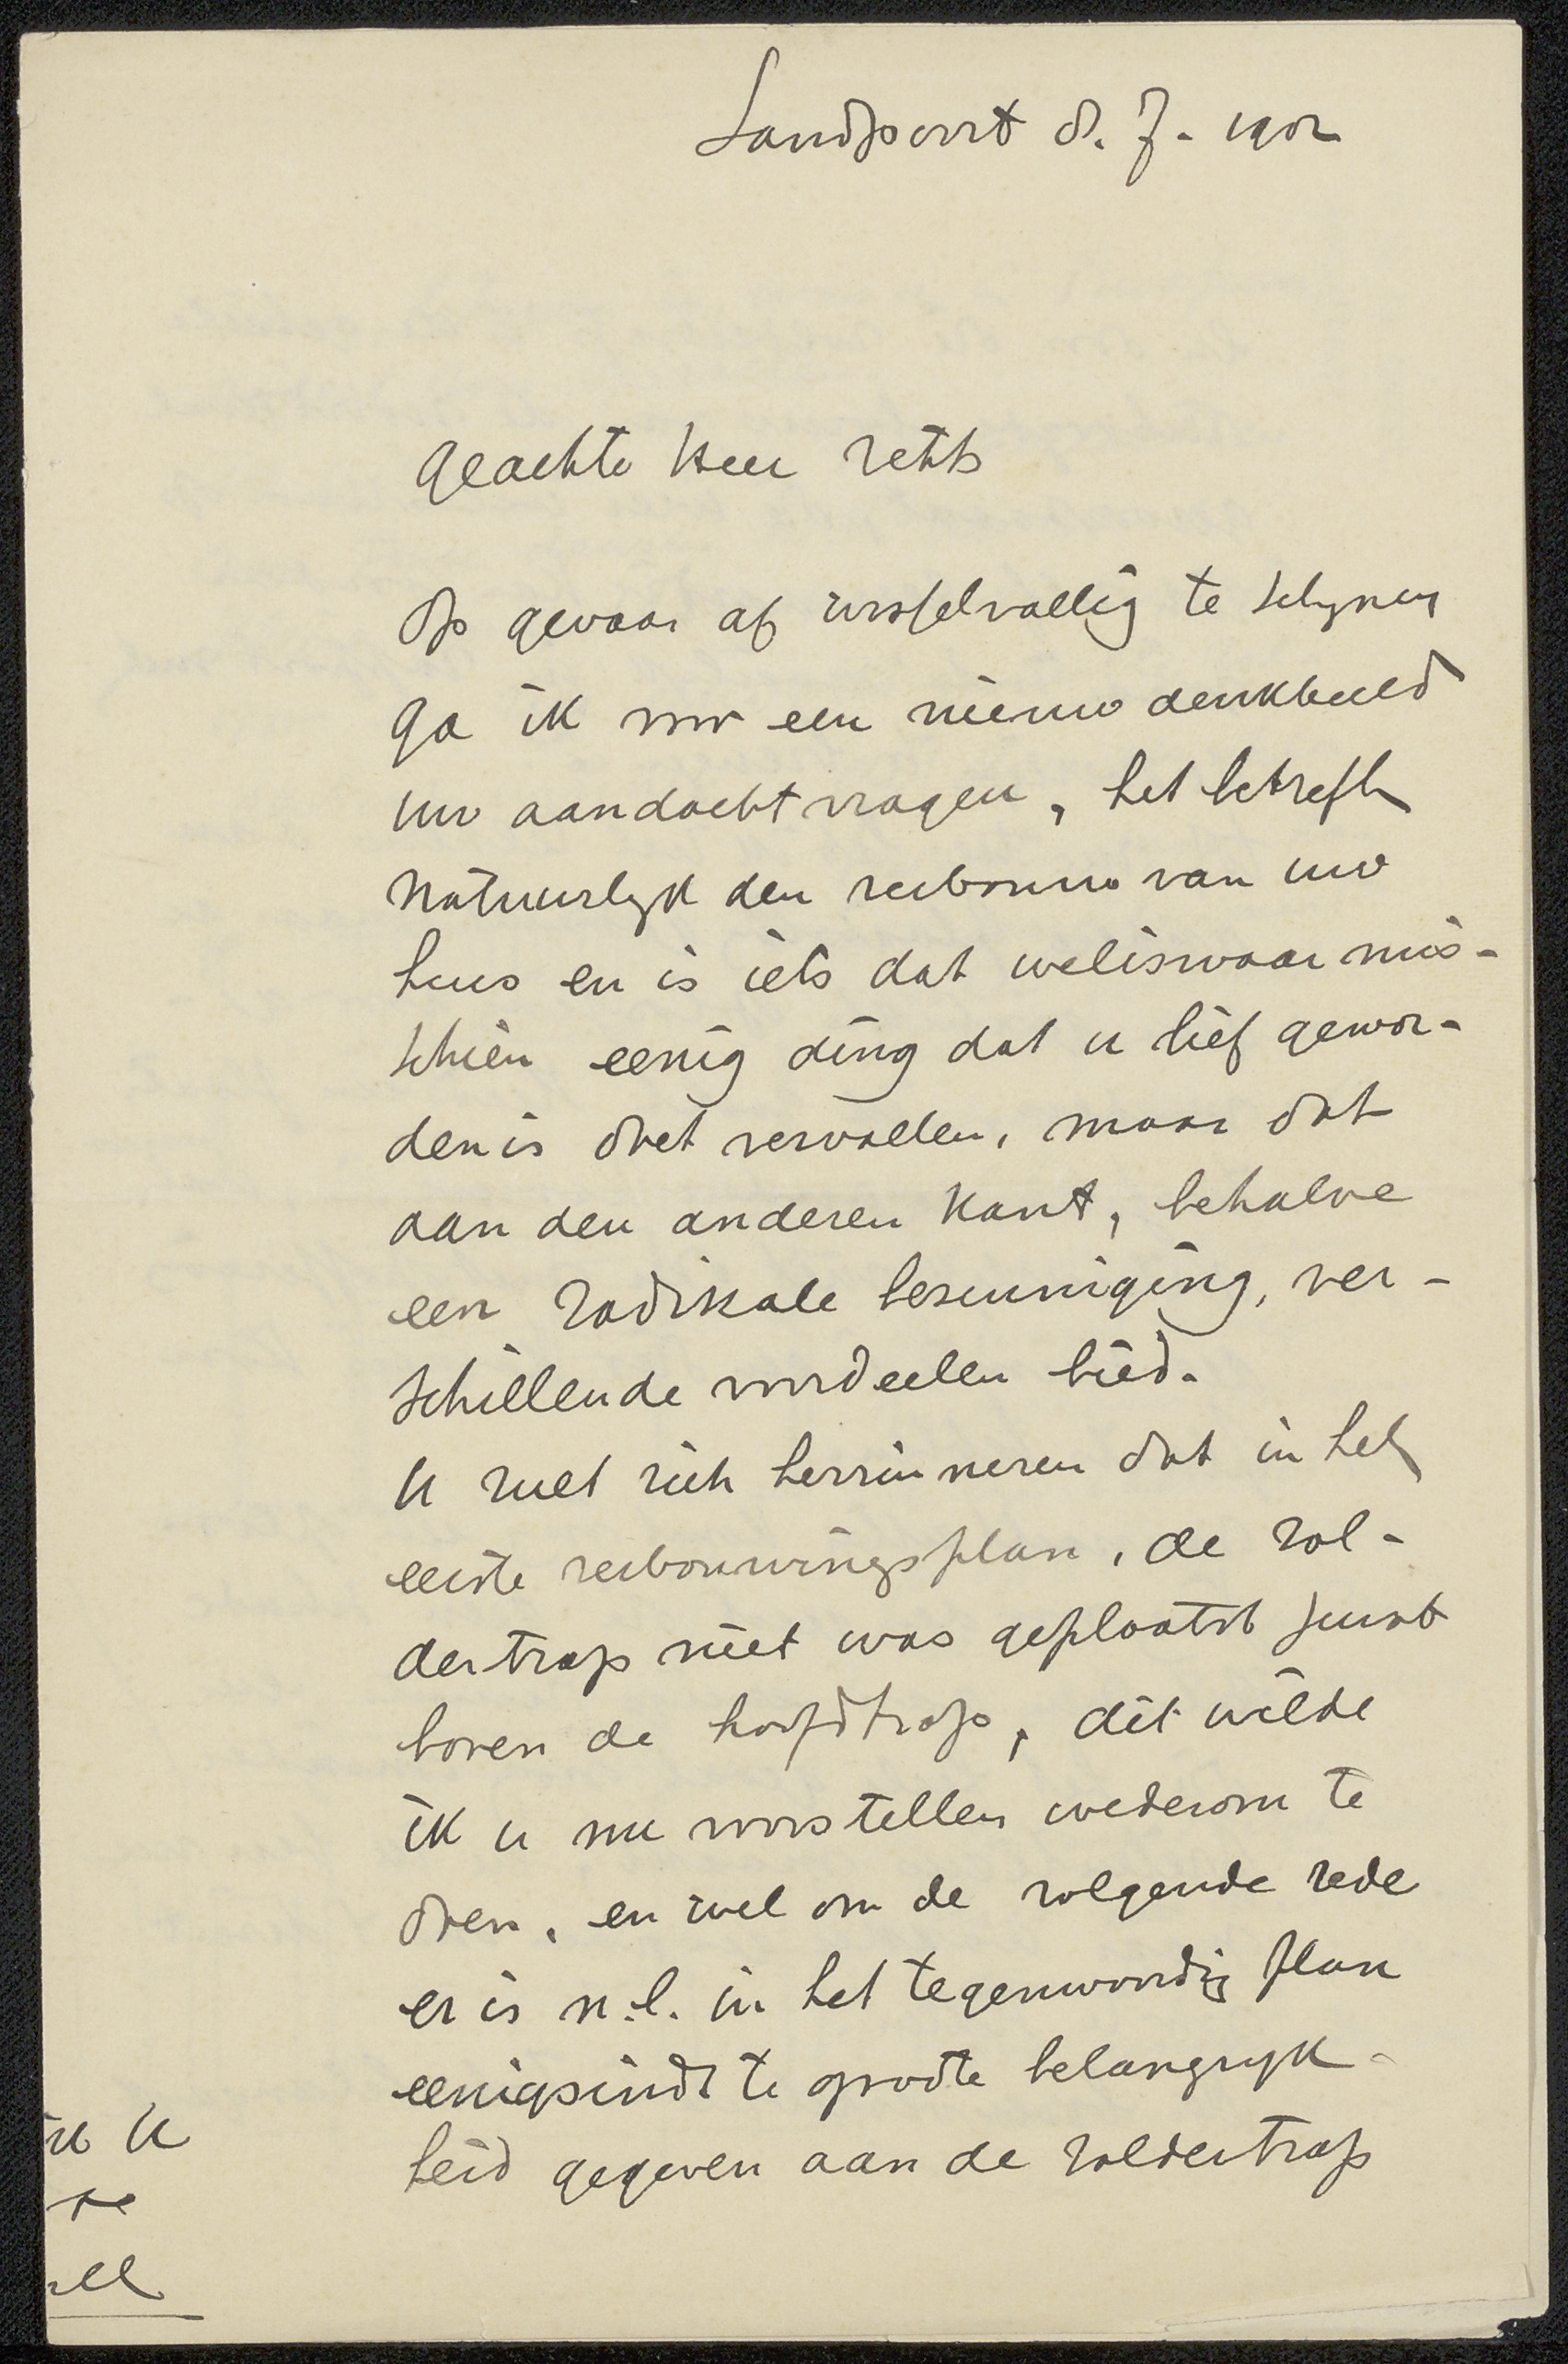 Landpoort d. 7. 1902
Geachte Heer Veth
Op gevaar af wisselvallig te schynen
ga ik voor een nieuw denkbeeld
uw aandacht vragen, het betreft
natuurlyk den verbouw van uw
huis en is iets dat weliswaar mis-
schien eenig ding dat u lief gewor-
den is doet vervallen, maar dat
aan den anderen kant, behalve
een radikale bezuiniging, ver-
schillende voordeelen bied.
U zult zich herrinneren dat in het
eerste verbouwingsplan, de zol-
dertrap niet was geplaatst juist
boven de hoofdtrap, dit wilde
ik u nu voorstellen wederom te
doen, en wel om de volgende rede
er is n.l. in het tegenwoordig plan
eenigsinds te groote belangryk-
heid gegeven aan de zoldertrap
U